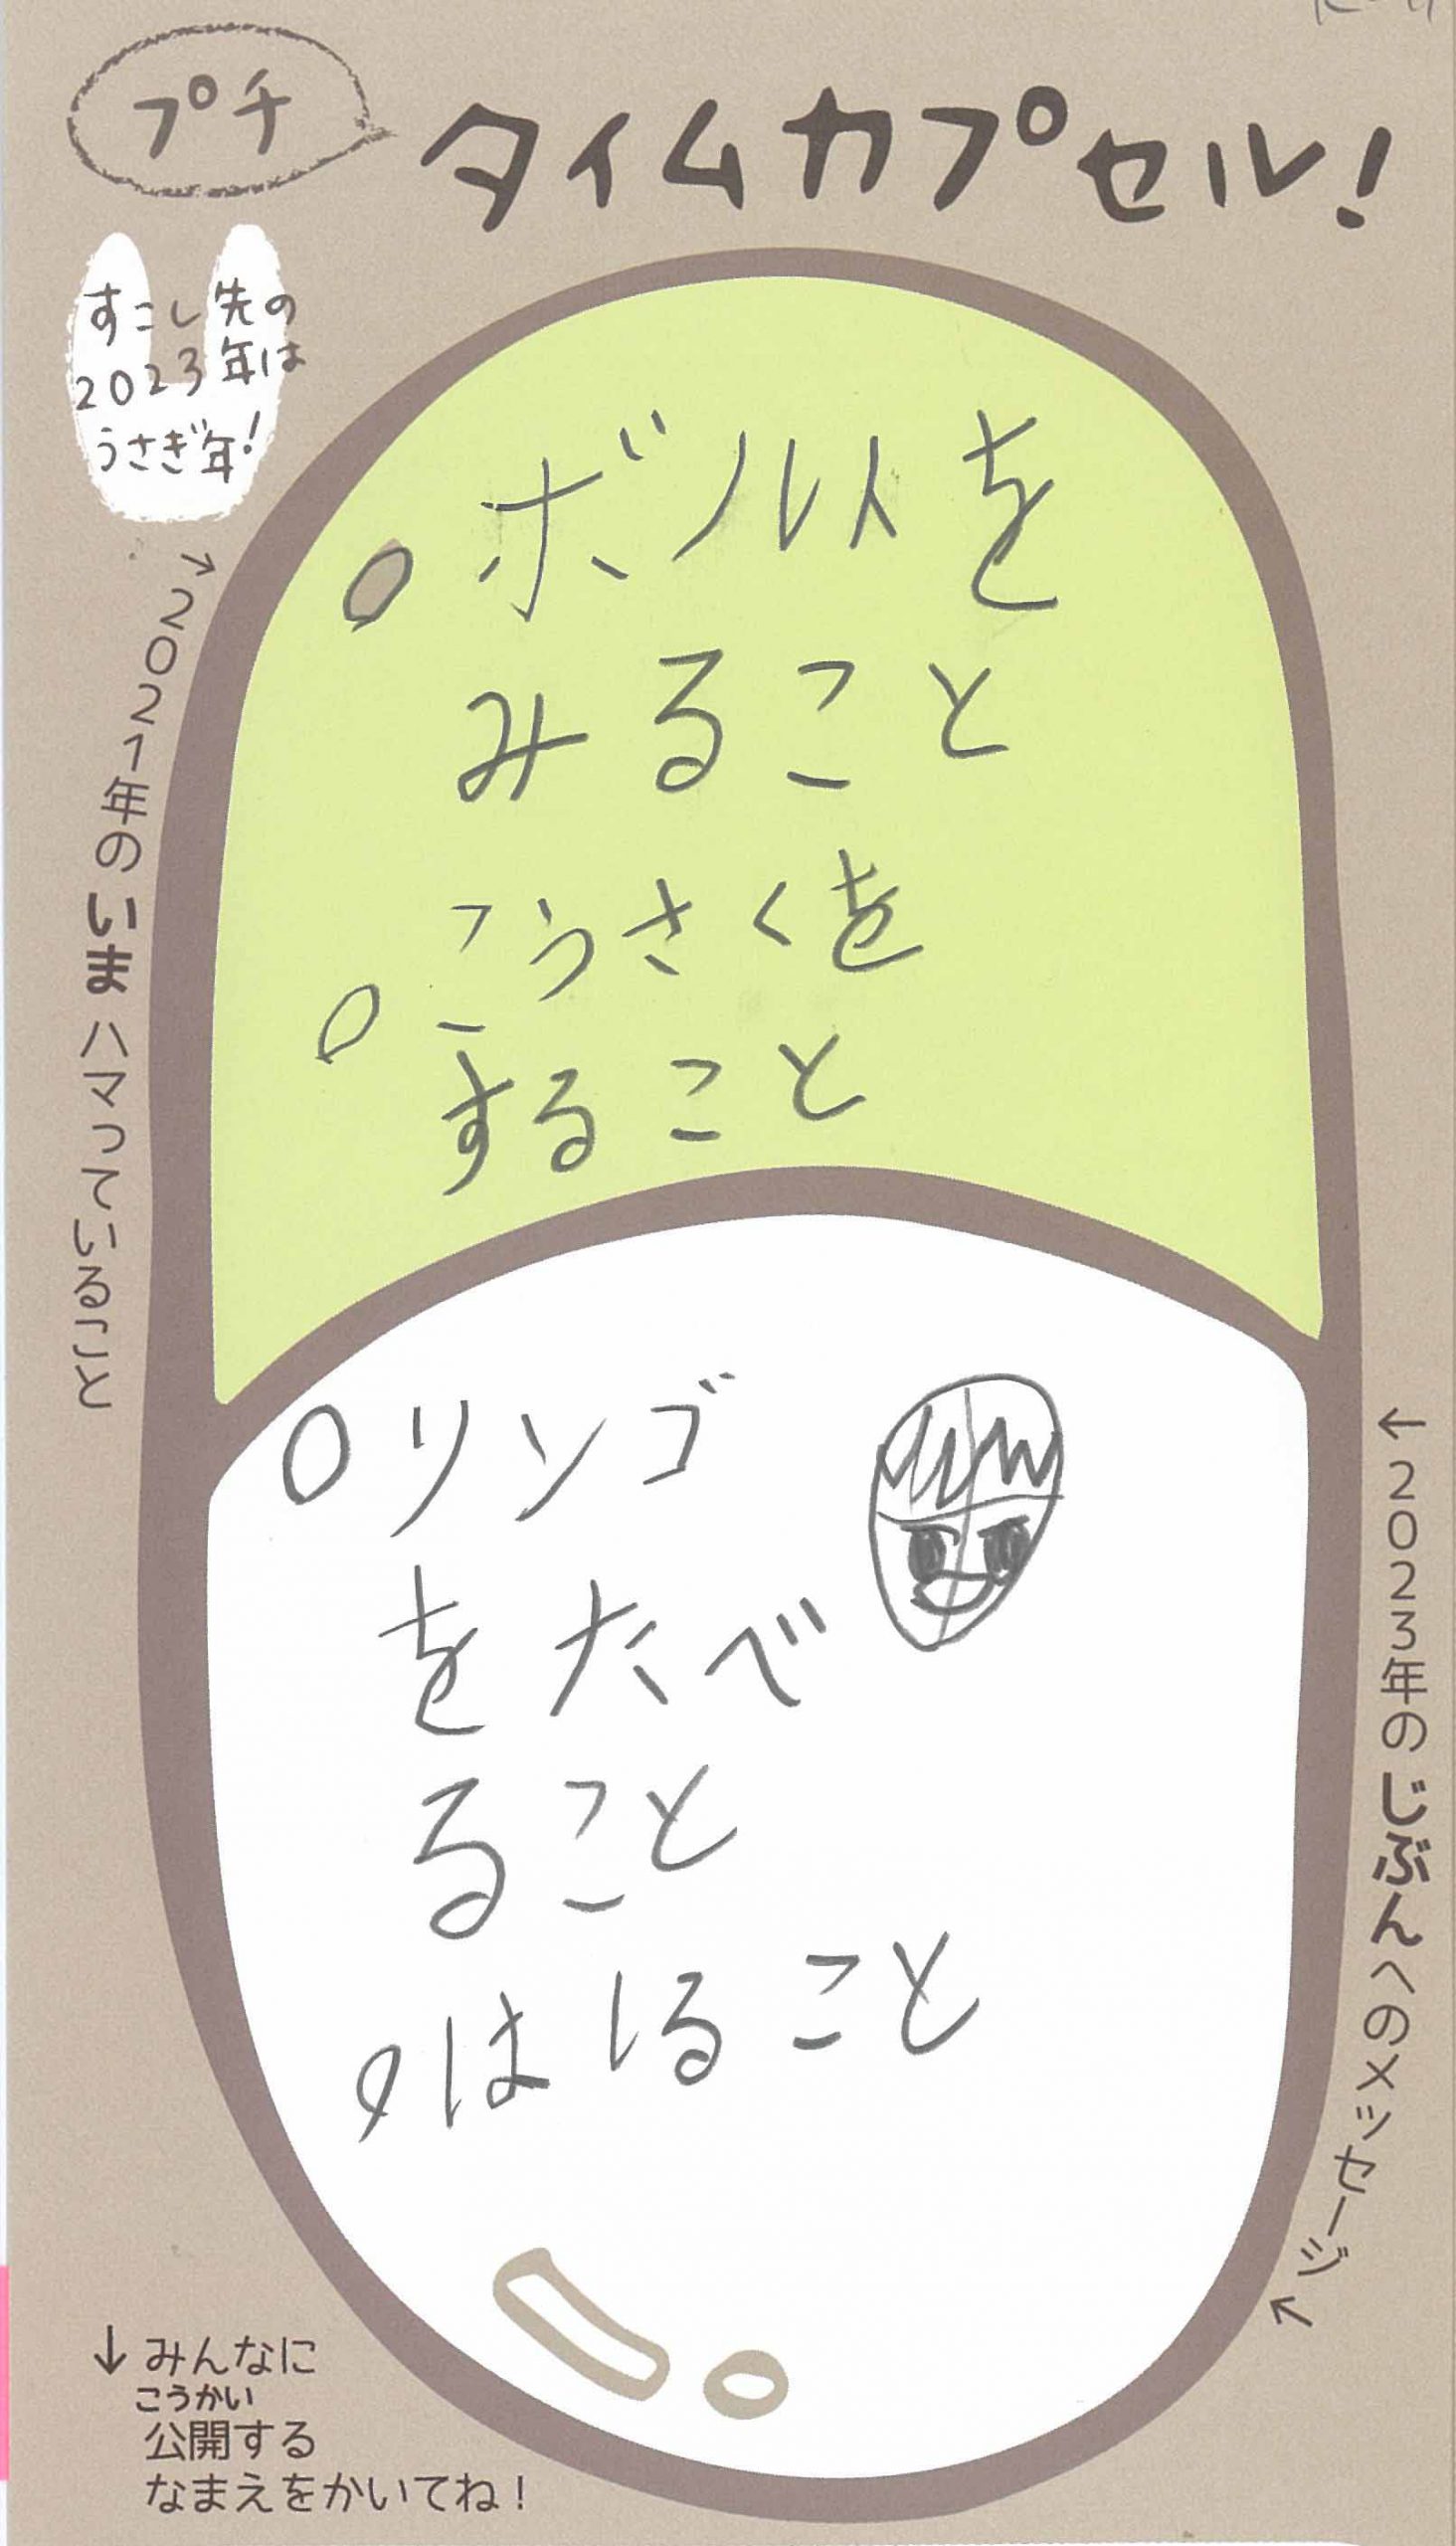 プチ
タイムカプセル!
すこし先の
2023年は
うさぎ年!
→2021年のいまハマっていること
○ボルトを
みること
○こうさくを
すること
←2023年のじぶんへのメッセージ↑
○リンゴ
をたべ
ること
○はしること
↓みんなに
こうかい
公開する
なまえをかいてね!